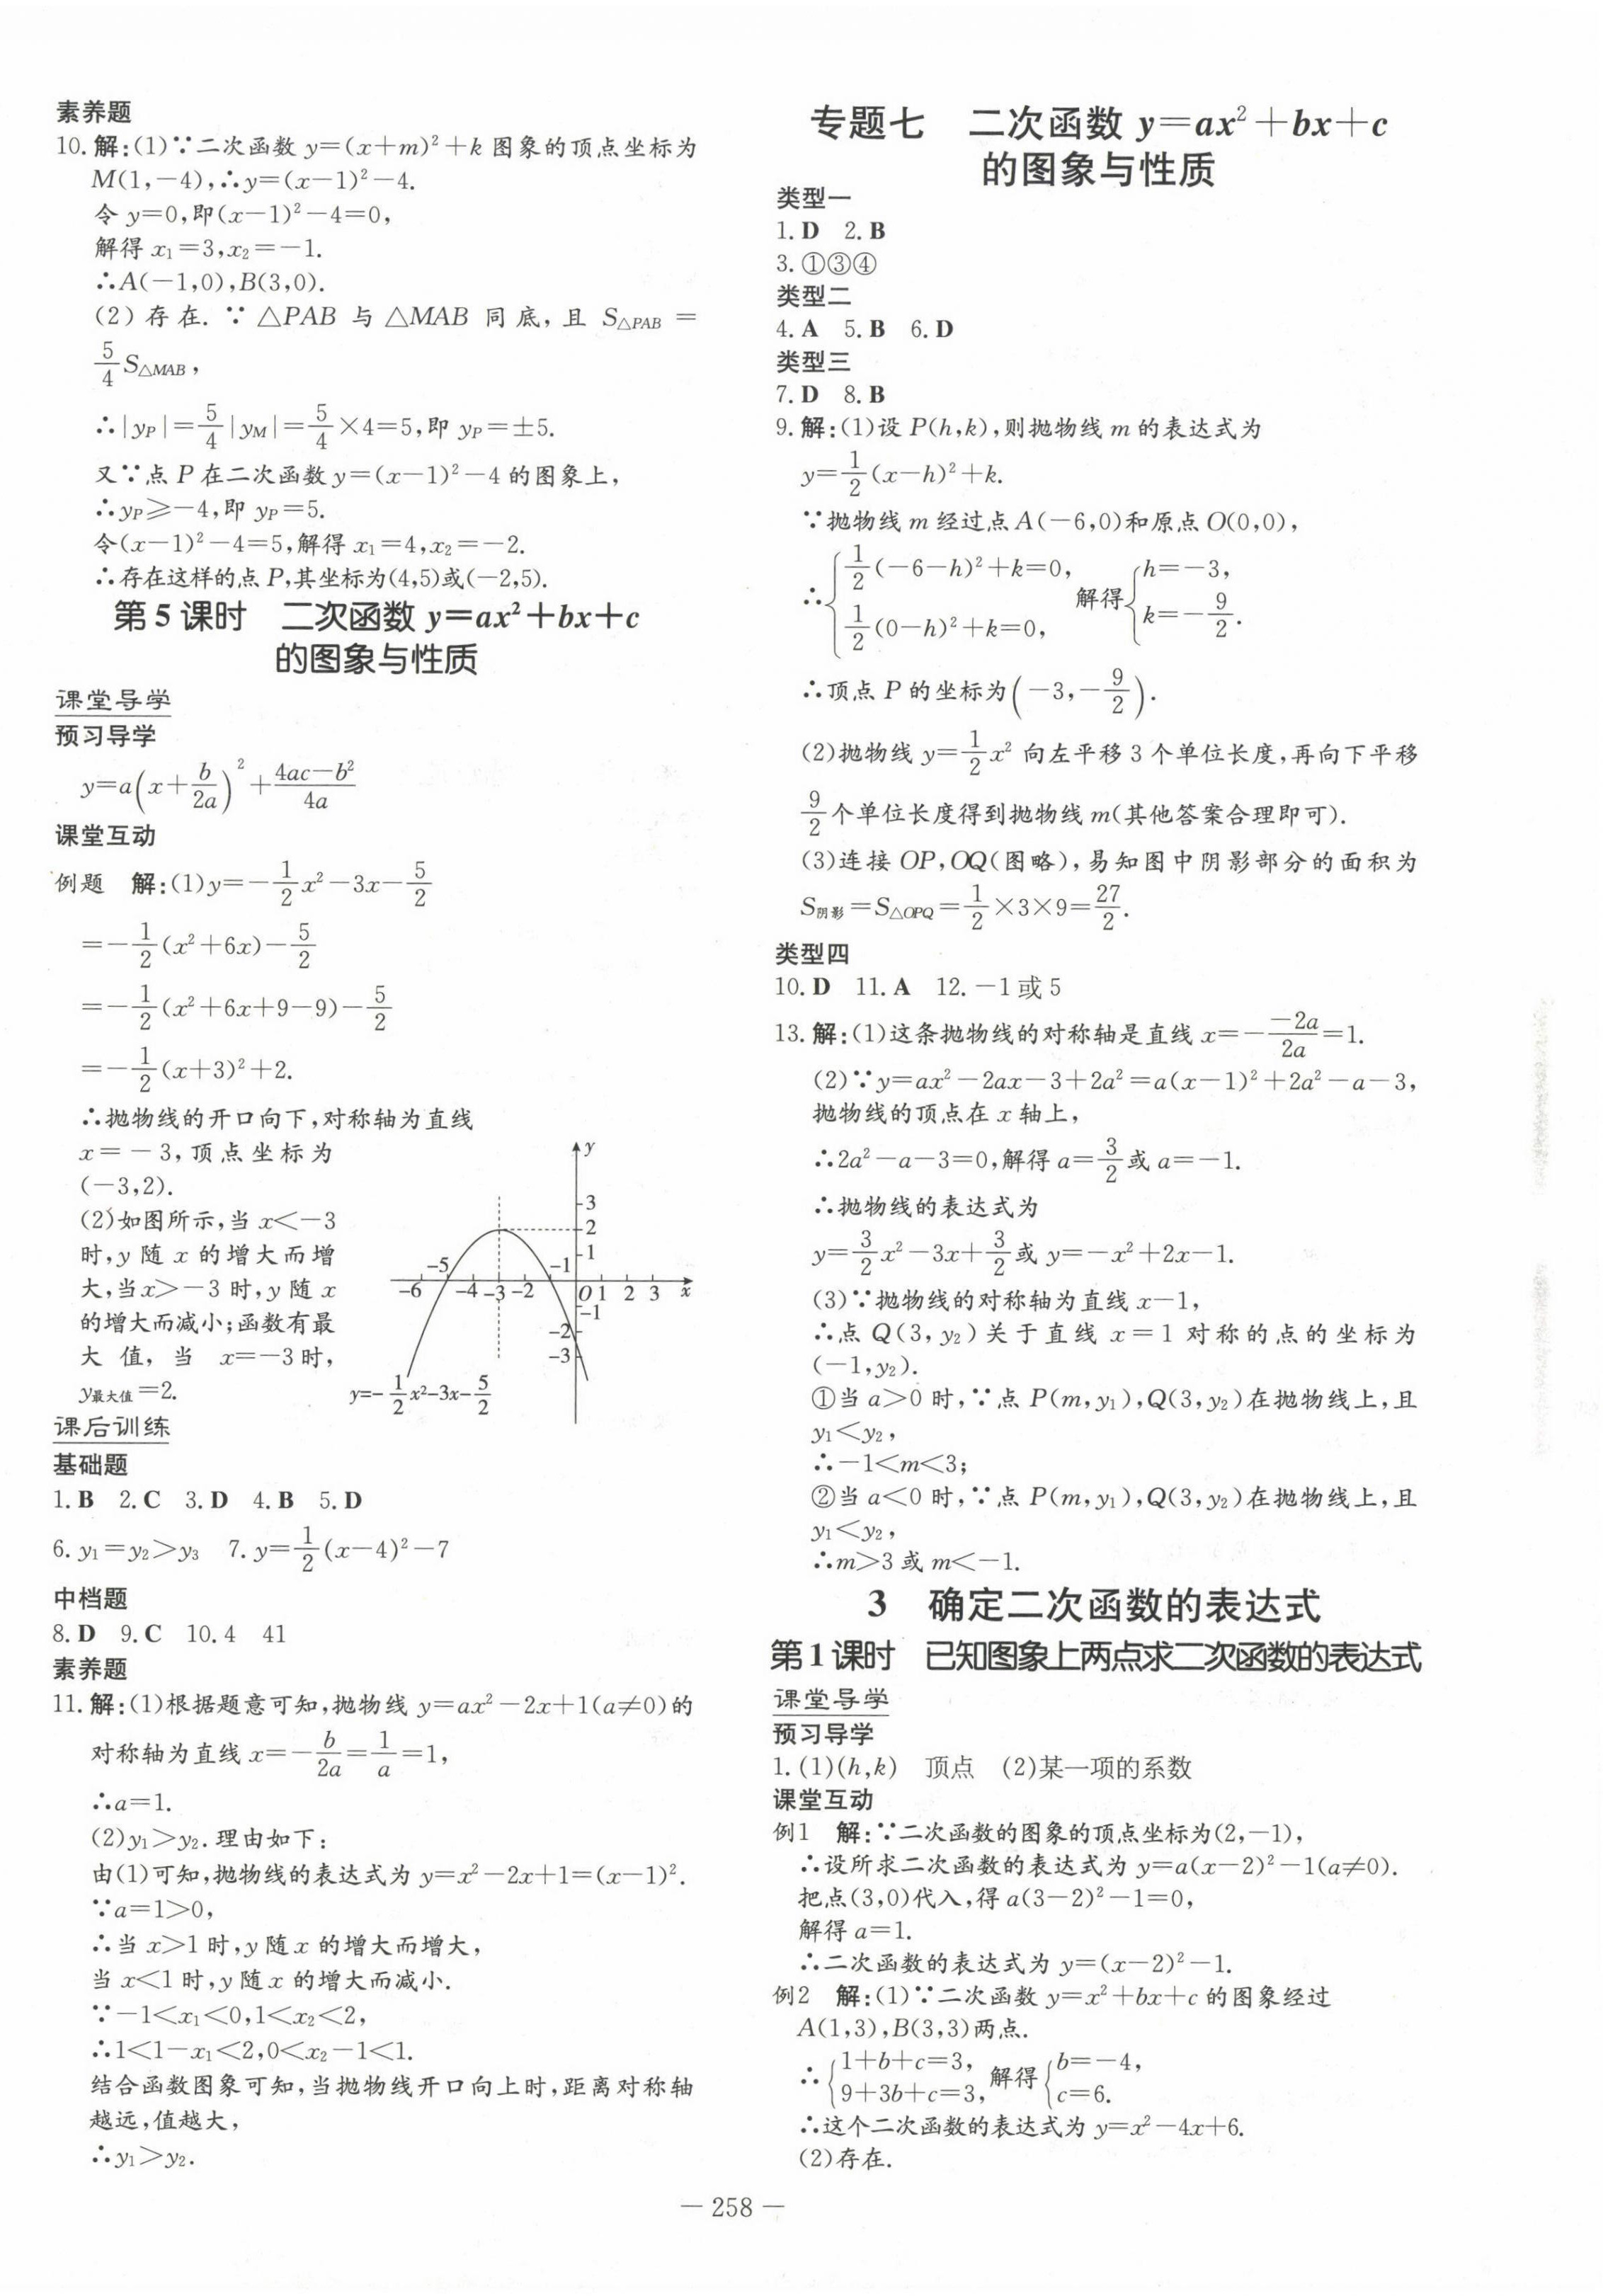 素养题
10. 解:(1)∵二次函数 y=(x+m)²+k 图象的顶点坐标为
M(1,-4),∴y=(x-1)²-4.
令 y=0,即(x-1)²-4=0,
解得 x₁=3,x₂=-1.
∴A(-1,0),B(3,0).
(2)存在. ∵ △PAB 与 △MAB 同底,且 S△PAB =
5/4 S△MAB,
∴|yP|=5/4|yM|=5/4×4=5,即 yP=±5.
又∵点 P 在二次函数 y=(x-1)²-4 的图象上,
∴yP≥-4,即 yP=5.
令(x-1)²-4=5,解得 x₁=4,x₂=-2.
∴存在这样的点 P,其坐标为(4,5)或(-2,5).
第 5 课时 二次函数 y=ax²+bx+c
的图象与性质
课堂导学
预习导学
y=a(x+b/2a)²+(4ac-b²)/4a
课堂互动
例题 解:(1)y=-1/2x²-3x-5/2
=-1/2(x²+6x)-5/2
=-1/2(x²+6x+9-9)-5/2
=-1/2(x+3)²+2.
∴抛物线的开口向下,对称轴为直线
x=-3,顶点坐标为
(-3,2).
(2)如图所示,当 x<-3
时,y 随 x 的增大而增
大,当x>-3 时,y 随 x
的增大而减小;函数有最
大值,当 x=-3时,
y最大值=2.
y
3
2
1
-5 -1
-6 -4 -3 -2 O 1 2 3 x
-1
-2
-3
y=-1/2x²-3x-5/2
课后训练
基础题
1. B 2. C 3. D 4. B 5. D
6. y₁=y₂>y₃ 7. y=1/2(x-4)²-7
中档题
8. D 9. C 10. 4 41
素养题
11. 解:(1)根据题意可知,抛物线 y=ax²-2x+1(a≠0)的
对称轴为直线 x=-b/2a=1/a=1,
∴a=1.
(2)y₁>y₂. 理由如下:
由(1)可知,抛物线的表达式为 y=x²-2x+1=(x-1)².
∵a=1>0,
∴当 x>1 时,y 随 x 的增大而增大,
当 x<1 时,y 随 x 的增大而减小.
∵-1<x₁<0,1<x₂<2,
∴1<1-x₁<2,0<x₂-1<1.
结合函数图象可知,当抛物线开口向上时,距离对称轴
越远,值越大,
∴y₁>y₂.
专题七 二次函数 y=ax²+bx+c
的图象与性质
类型一
1. D 2. B
3. ①③④
类型二
4. A 5. B 6. D
类型三
7. D 8. B
9. 解:(1)设 P(h,k),则抛物线 m 的表达式为
y=1/2(x-h)²+k.
∵抛物线 m 经过点 A(-6,0)和原点 O(0,0),
∴{1/2(-6-h)²+k=0, 1/2(0-h)²+k=0, 解得{h=-3, k=-9/2.
∴顶点 P 的坐标为(-3,-9/2).
(2)抛物线 y=1/2x² 向左平移 3 个单位长度,再向下平移
9/2个单位长度得到抛物线 m(其他答案合理即可).
(3)连接 OP,OQ(图略),易知图中阴影部分的面积为
S阴影=S△OPQ=1/2×3×9=27/2.
类型四
10. D 11. A 12. -1 或 5
13. 解:(1)这条抛物线的对称轴是直线 x=-(-2a)/2a=1.
(2)∵y=ax²-2ax-3+2a²=a(x-1)²+2a²-a-3,
抛物线的顶点在 x 轴上,
∴2a²-a-3=0,解得 a=3/2或 a=-1.
∴抛物线的表达式为
y=3/2x²-3x+3/2或 y=-x²+2x-1.
(3)∵抛物线的对称轴为直线 x-1,
∴点 Q(3, y₂)关于直线 x=1 对称的点的坐标为
(-1,y₂).
①当 a>0 时,∵点 P(m,y₁),Q(3,y₂)在抛物线上,且
y₁<y₂,
∴-1<m<3;
②当 a<0 时,∵点 P(m,y₁),Q(3,y₂)在抛物线上,且
y₁<y₂,
∴m>3 或 m<-1.
3 确定二次函数的表达式
第 1 课时 已知图象上两点求二次函数的表达式
课堂导学
预习导学
1. (1)(h,k) 顶点 (2)某一项的系数
课堂互动
例1 解:∵二次函数的图象的顶点坐标为(2,-1),
∴设所求二次函数的表达式为 y=a(x-2)²-1(a≠0).
把点(3,0)代入,得 a(3-2)²-1=0,
解得 a=1.
∴二次函数的表达式为 y=(x-2)²-1.
例2 解:(1)∵二次函数 y=x²+bx+c 的图象经过
A(1,3),B(3,3)两点.
∴{1+b+c=3, 9+3b+c=3, 解得{b=-4, c=6.
∴这个二次函数的表达式为 y=x²-4x+6.
(2)存在.
— 258 —